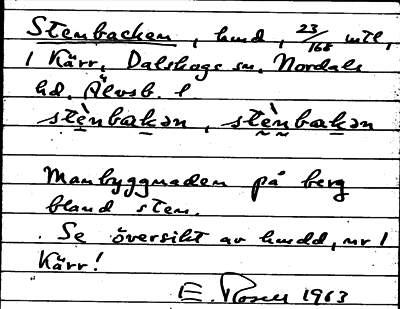 Stenbacken, hmd, 23/168 mtl,
1 Kärr, Dalskogs sn, Nordals
hd. Älvsb. l
stὲnbakən, stὲnbakən
Manbyggnaden på berg
bland sten.
Se översikt av hmdd, nr 1
Kärr!
E. Rosell 1963